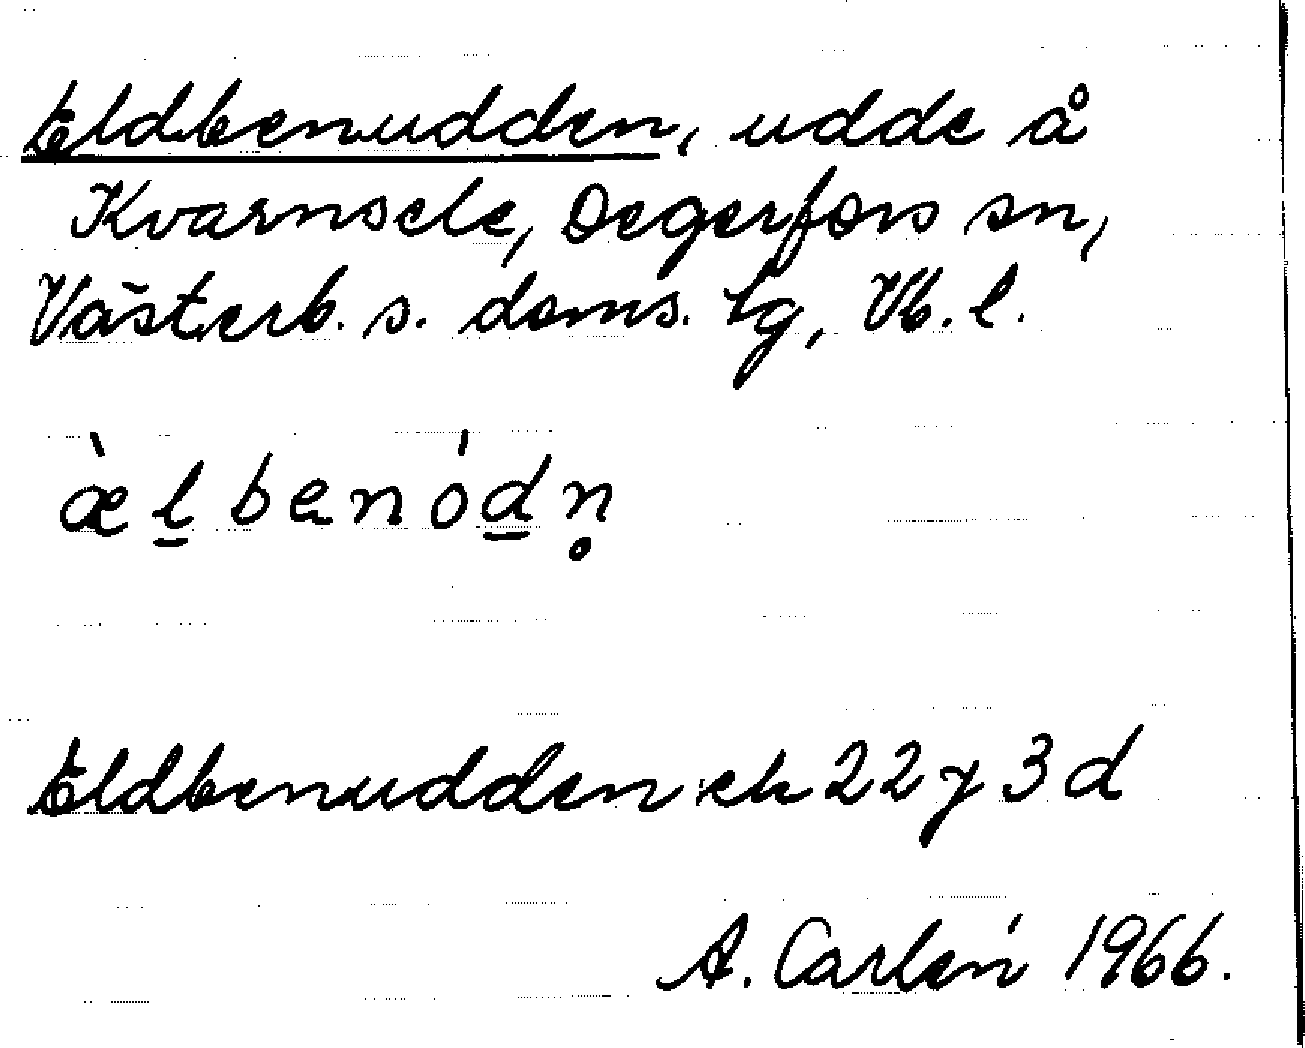 Eldbenudden, udde å
Kvarnsele, Degerfors sn,
Västerb. s. doms. tg, Vb. l.
æ̀l̠benód̠n̥
Eldbenudden ek 22 y 3 d
A. Carlén 1966.